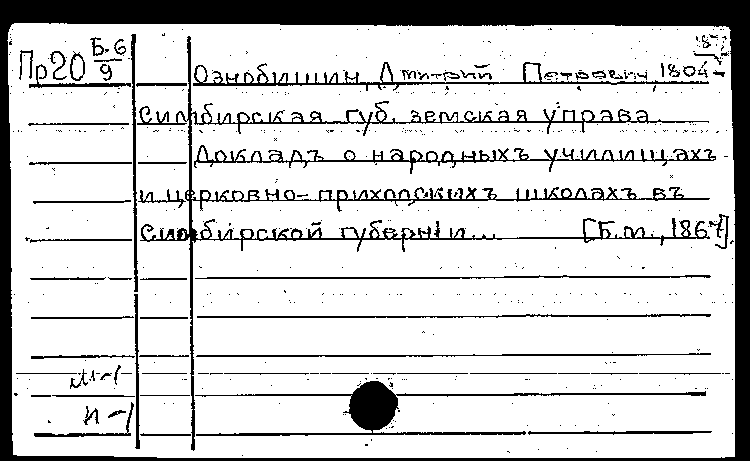 Пр20 Б.6
9
187
Ознобишин, Дмитрий Петрович, 1804-
Симбирская губ. земская управа.
Докладъ о народныхъ училищахъ
и церковно-приходскихъ школахъ въ
Симбирской губерніи... [Б.м., 1867].
М-1
К-1